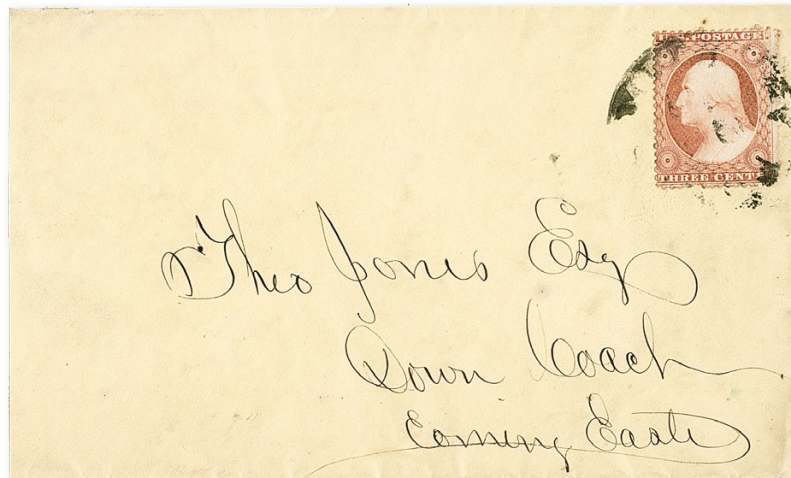 U.S. POSTAGE
THREE CENT
Theo Jones Esq
Down Coach
Coming East